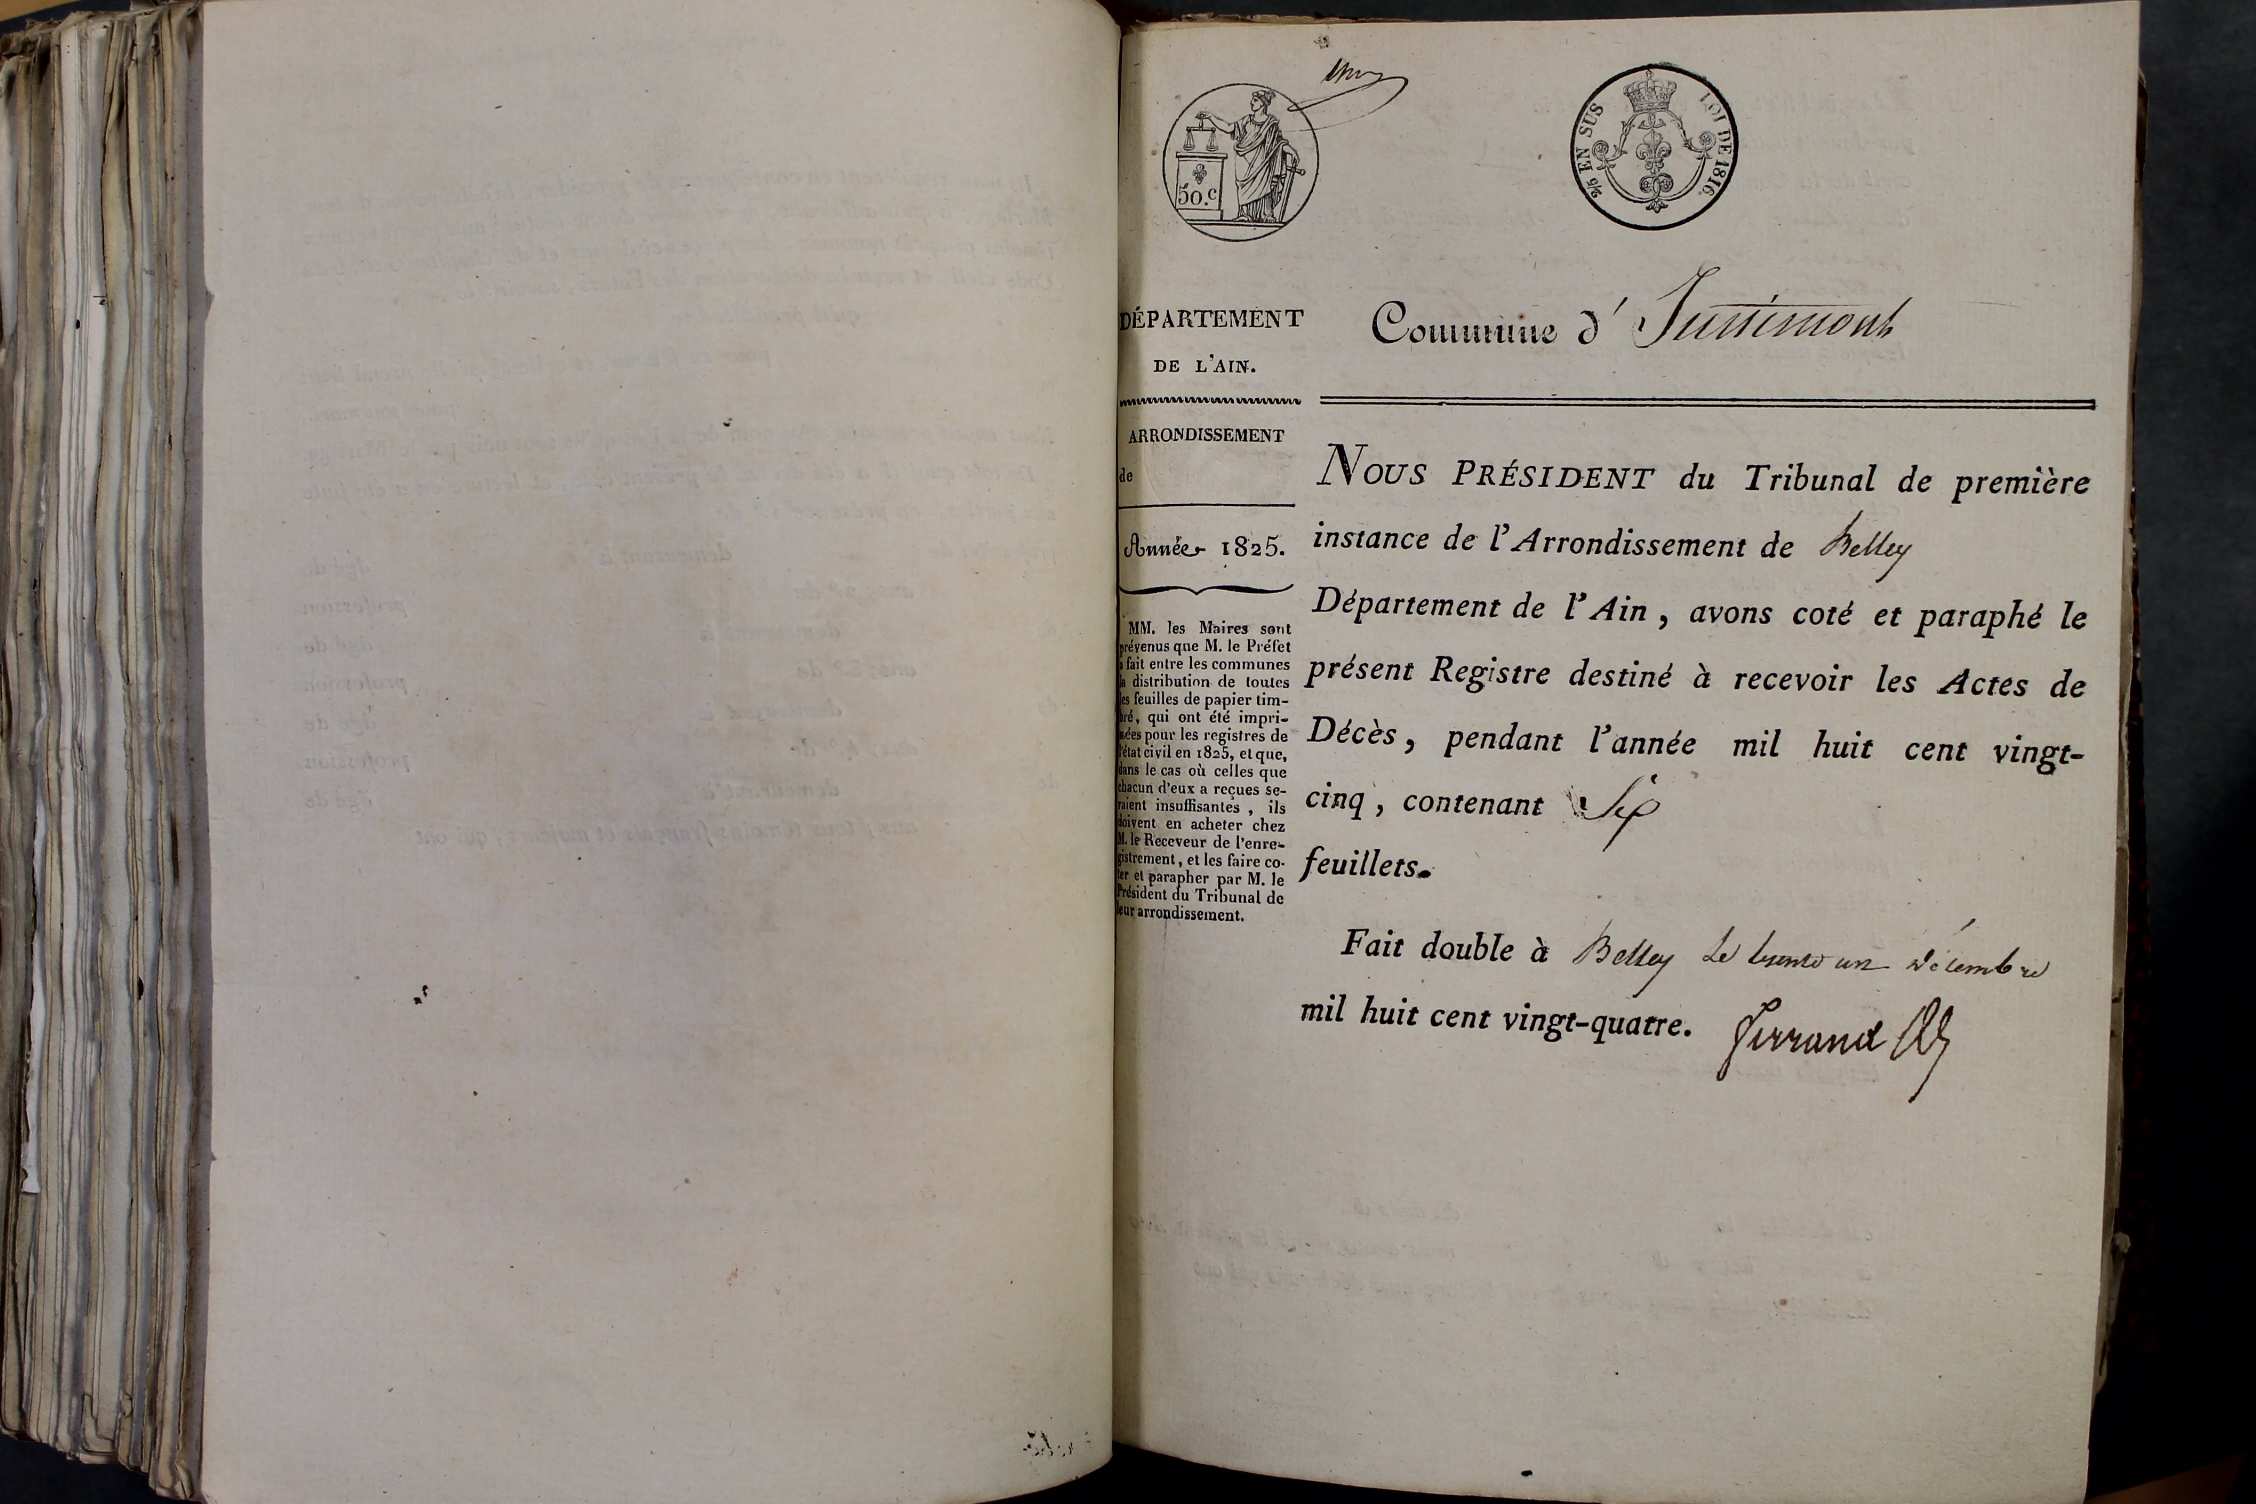 50.c
2/5 EN SUS
LOI DE 1816.
DÉPARTEMENT
DE L'AIN.
ARRONDISSEMENT
de
Année 1825.
MM. les Maires sont
prévenus que M. le Préfet
a fait entre les communes
la distribution de toutes
les feuilles de papier tim-
bré, qui ont été impri-
mées pour les registres de
l'état civil en 1825, et que,
dans le cas où celles que
chacun d'eux a reçues se-
raient insuffisantes, ils
doivent en acheter chez
M. le Receveur de l'enre-
gistrement, et les faire co-
ter et parapher par M. le
Président du Tribunal de
leur arrondissement.
Commune d' Jurrimont
NOUS PRÉSIDENT du Tribunal de première
instance de l'Arrondissement de Belley
Département de l'Ain, avons coté et paraphé le
présent Registre destiné à recevoir les Actes de
Décès, pendant l'année mil huit cent vingt-
cinq, contenant Six
feuillets.
Fait double à Belley le trente un décembre
mil huit cent vingt-quatre. Ferrand